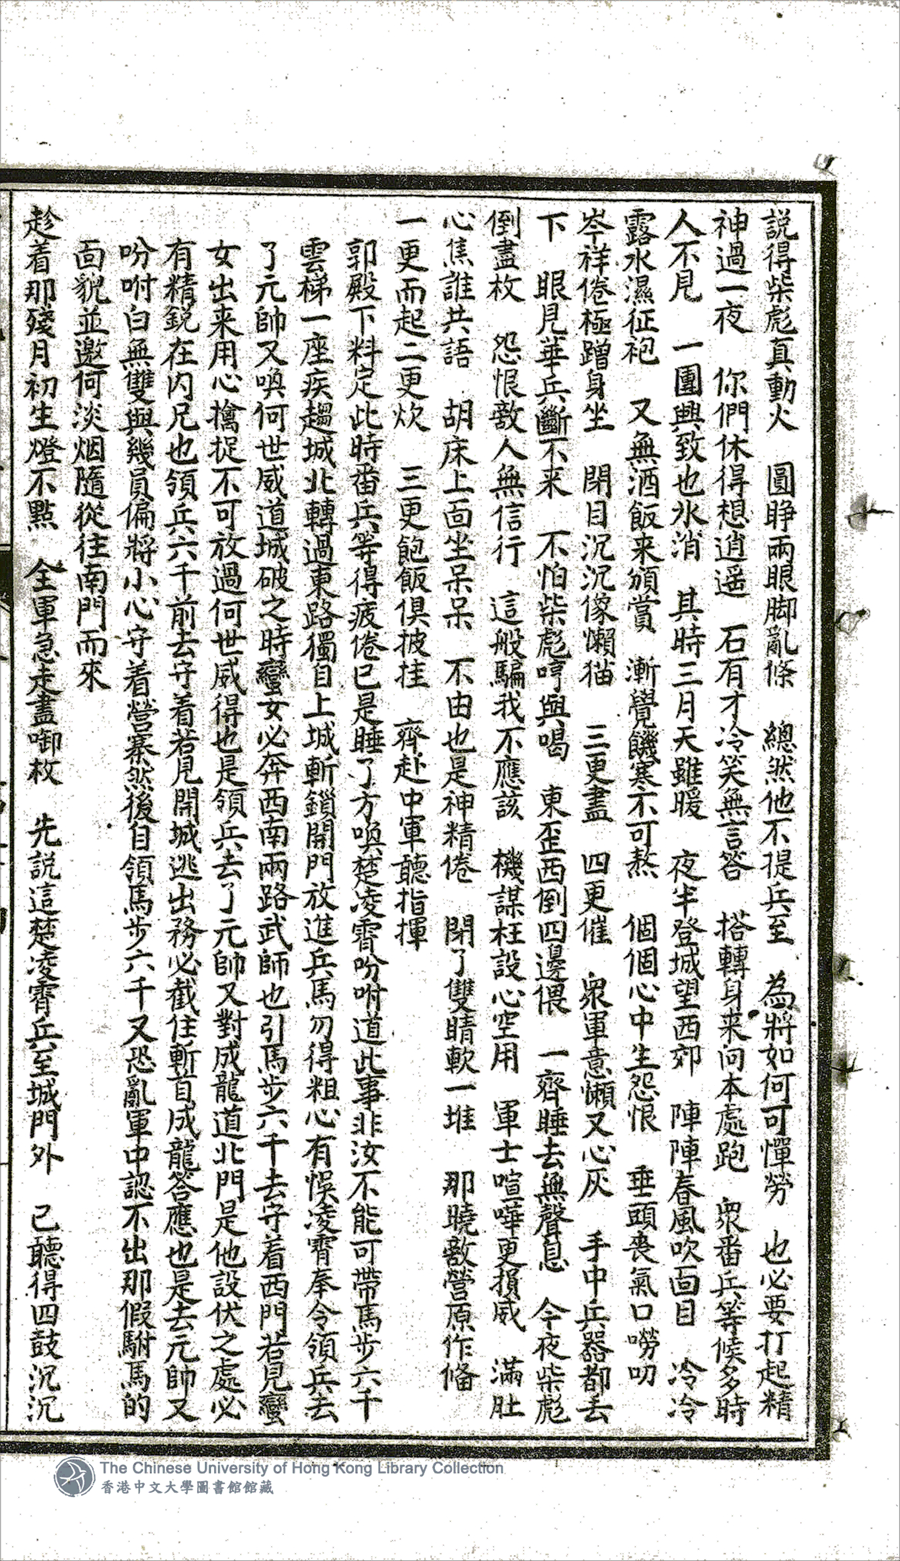 説得柴彪真動火　圓睜兩眼脚亂條　總然他不提兵至　為將如何可憚勞　也必要打起精
神過一夜　你們休得想逍遥　石有才冷笑無言答　搭轉身来向本處跑　衆番兵等候多時
人不見　一團興致也氷消　其時三月天雖暖　夜半登城望西郊　陣陣春風吹面目　冷冷
露水濕征袍　又無酒飯来頒賞　漸覺饑寒不可熬　個個心中生怨恨　垂頭喪氣口嘮叨
岑祥倦極蹭身坐　閉目沉沉像懶猫　三更盡　四更催　衆軍意懶又心灰　手中兵器都丢
下　眼見華兵斷不来　不怕柴彪哼與喝　東歪西倒四邊偎　一齊睡去無聲息　今夜柴彪
倒盡枚　怨恨敌人無信行　這般騙我不應該　機謀枉設心空用　軍士喧嘩更損威　滿肚
心焦誰共語　胡床上面坐呆呆　不由也是神精倦　閉了雙睛軟一堆　那曉敵營原作偹
一更而起二更炊　三更飽飯俱披挂　齊赴中軍聽指揮
郭殿下料定此時番兵等得疲倦已是睡了方喚楚凌霄吩咐道此事非汝不能可帶馬步六千
雲梯一座疾趨城北轉過東路獨自上城斬鎖開門放進兵馬勿得粗心有悞凌霄奉令領兵去
了元帥又喚何世威道城破之時蠻女必奔西南兩路武師也引馬步六千去守着西門若見蠻
女出来用心擒捉不可放過何世威得也是領兵去了元帥又對成龍道北門是他設伏之處必
有精鋭在内兄也領兵六千前去守着若見開城逃出務必截住斬首成龍答應也是去元帥又
吩咐白無雙與幾員偏將小心守着營寨然後自領馬步六千又恐亂軍中認不出那假駙馬的
面貌並邀何淡烟隨從往南門而來
趁着那殘月初生燈不點　全軍急走盡啣枚　先説這楚凌霄兵至城門外　已聽得四鼓沉沉
The Chinese University of Hong Kong Library Collection
香港中文大學圖書館館藏